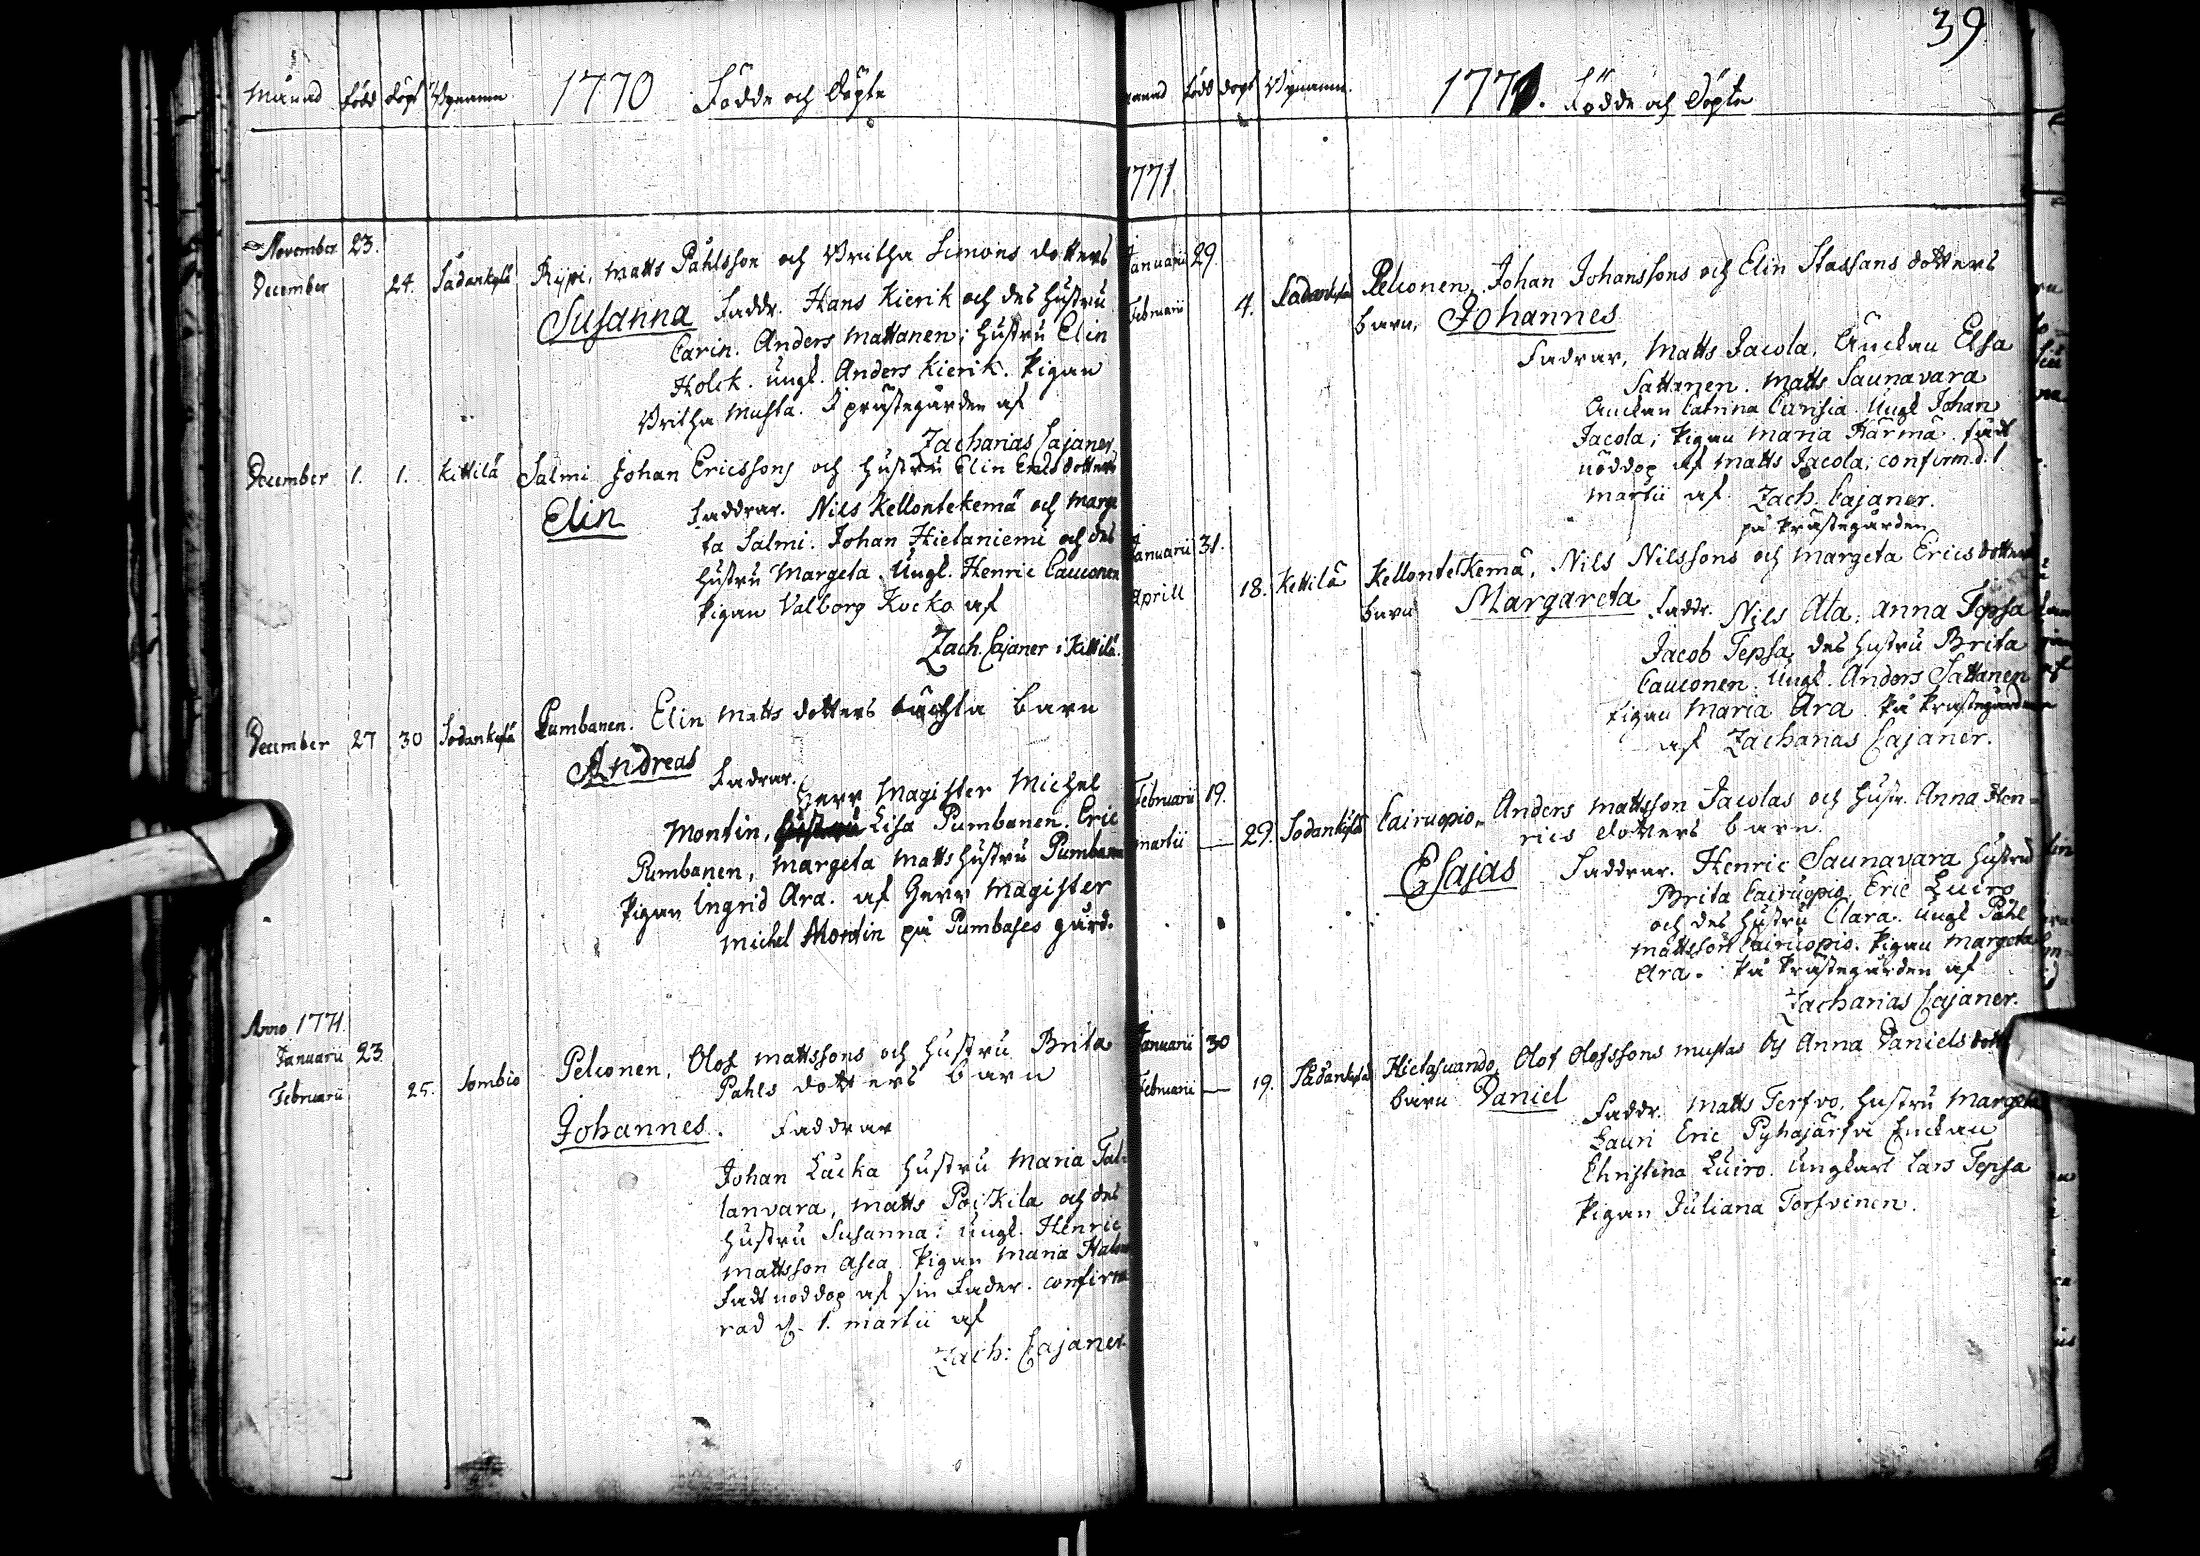 Månad Född döpt Bynamn 1770 Födde och Döpte
November 23.
December 24. Sådankylä Rijpi, Matts Påhlsson och Britha Simons dotters
Susanna Faddr. Hans Kierik och des hustru
Carin. Anders Mattanen; hustru Elin
Holck. ungk. Anders Kierik. Pigan
Britha Musta. I prästegården af
Zacharias Cajaner
December 1. 1. Kittilä Salmi Johan Ericssons och hustru Elin Erics dotters
Elin Faddrar. Nils Kellontekemä och Marge
ta Salmi. Johan Hietaniemi och des
hustru Margeta. Ungk. Henric Cauconen
Pigan Valborg Kocko af
Zach. Cajaner i Kittilä.
December 27 30 Sodankylä Pumbanen. Elin Matts dotters oächta barn
Andreas Fadrar.
Herr Magister Michel
Montin, Lisa Pumbanen. Eric
Pumbanen, Margeta Matts hustru Pumbanen
Pigan Ingrid Ara. af Herr Magister
Michel Montin på Pumbases gård.
Anno 1771.
Januarii 23. Pelconen, Olof Mattssons och hustru Brita
Februarii 25. Sombio Pahls dotters barn
Johannes. Faddrar
Johan Lacka hustru Maria Tal-
lanvara, Matts Poikila och des
hustru Susanna: ungk. Henric
Mattsson Asea. Pigan Maria
Fadt nöddop af sin Fader. confirme
rad d. 1. martii af
Zach: Cajaner
39
Månad född döpt Bynamn. 1771. Födde och Döpte
1771.
Januarii 29. Pelconen, Johan Johanssons och Elin Staffans dotters
Februarii 4. Sodankylä barn, Johannes
Fadrar, Matts Jacola, Änckan Elsa
Sattanen. Matts Saunavara
Änckan Catrina Curisia. Ungk Johan
Jacola; Pigan Maria Härmä. fådt
nöddop af Matts Jacola; confirm. d. 1
martii af Zach. Cajaner.
på Prästegården
Januarii 31.
Aprill 18. Kittilä Kellontekemä, Nils Nilssons och Margeta Erics dotters
barn Margareta Faddr. Nils Ala, Anna Tepsa
Jacob Tepsa, des hustru Brita
Cauconen. Ungk. Anders Sattanen
Pigan Maria Ara. På Prästegården
af Zacharias Cajaner.
Februarii 19. Cairuopio, Anders Mattsson Jacolas och hustr. Anna Hen-
martii — 29. Sodankylä rics dotters barn.
Esajas Faddrar. Henric Saunavara hustru
Brita Cairuopio. Eric Luiro
och des hustru Clara. ungk Påhl
Mattsson Cairuopio. Pigan Margeta
Ara. På Prästegården af
Zacharias Cajaner.
Januarii 30
Februarii — 19. Sådankylä Hietasuando, Olof Olofssons Mustas och Anna Daniels dott
barn Daniel Faddr. Matts Terfvo, hustru Margeta
Lauri Eric Pyhajärfvi Enckan
Christina Luiro. Ungkarl Lars Tepsa
Pigan Juliana Torfvinen.